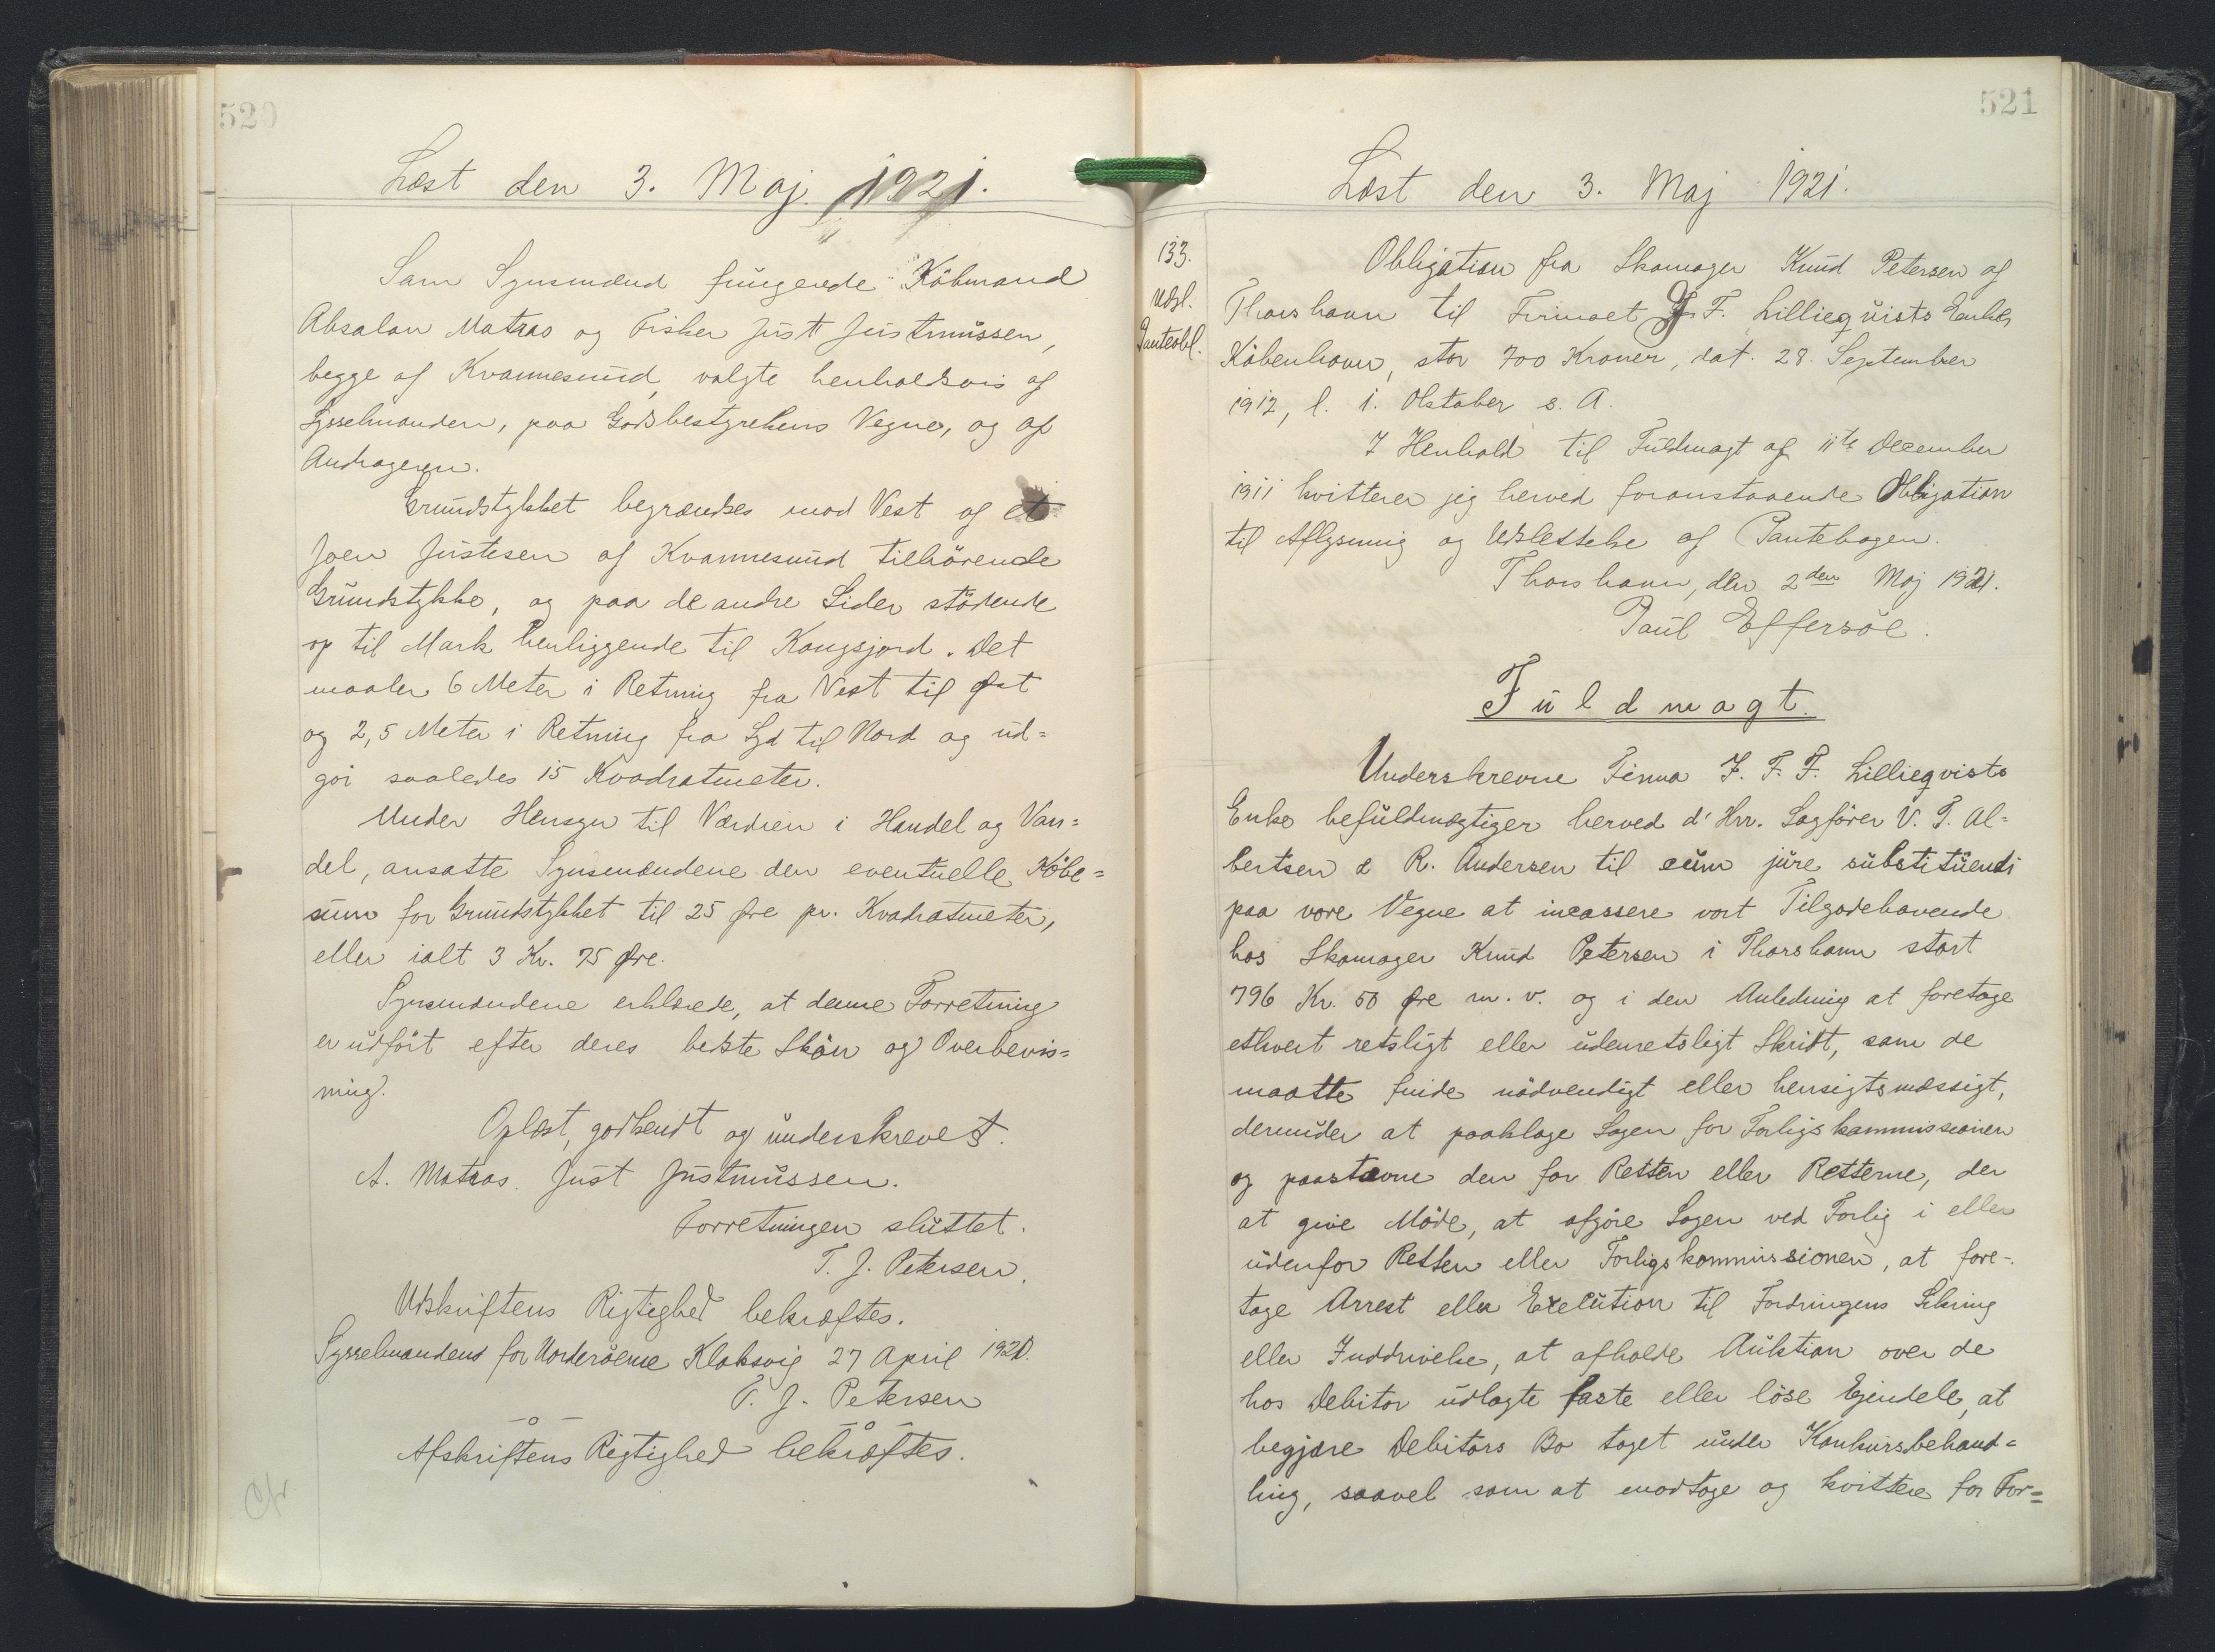 520
Læst den 3. Maj 1921.
Som Synsmænd fungerede Köbmand
Absalon Matras og Fisker Just Justmussen,
begge af Kvannesund, valgte henholdsvis af
Sysselmanden, paa Godsbestyrelsens Vegne, og af
Andrageren.
Grundstykket begrændses mod Vest af et
Joen Justesen af Kvannesund tilhörende
Grundstykke, og paa de andre Sider stödende
op til Mark henliggende til Kongsjord. Det
maaler 6 Meter i Retning fra Vest til Øst
og 2,5 Meter i Retning fra Syd til Nord og ud=
gör saaledes 15 Kvadratmeter.
Under Hensyn til Værdien i Handel og Van=
del, ansatte Synsmændene den eventuelle Köbe=
sum for Grundstykket til 25 Øre pr. Kvadratmeter,
eller ialt 3 Kr. 75 Øre.
Synsmændene erklærede, at denne Forretning
er udfört efter deres bedste Skön og Overbevis=
ning.
Oplæst, godkendt og underskrevet.
A. Matras. Just Justmussen.
Forretningen sluttet.
T. J. Petersen.
Udskriftens Rigtighed bekræftes.
Sysselmanden for Norderöerne Klaksvig 27 April 1920.
T. J. Petersen
Afskriftens Rigtighed bekræftes.
Cfr.
521
Læst den 3. Maj 1921.
133.
Udsl.
Panteobl.
Obligation fra Skomager Knud Petersen af
Thorshavn til Firmaet J. F. Lillieqvists Enke,
Köbenhavn, stor 700 Kroner, dat. 28. September
1912, l. 1. Oktober s. A.
I Henhold til Fuldmagt af 11te December
1911 kvitterer jeg herved foranstaaende Obligation
til Aflysning og Udslettelse af Pantebogen.
Thorshavn, den 2den Maj 1921.
Paul Effersöe.
Fuldmagt.
Underskrevne Firma J. F. F. Lillieqvists
Enke befuldmægtiger herved d' Hrr. Sagförer V. T. Al=
bertsen & R. Andersen til cum jure substituendi
paa vore Vegne at incassere vort Tilgodehavende
hos Skomager Knud Petersen i Thorshavn stort
796 Kr. 50 Øre m. v. og i den Anledning at foretage
ethvert retsligt eller udenretsligt Skridt, som de
maatte finde nödvendigt eller hensigtsmæssigt,
derunder at paaklage Sagen for Forligskommissionen
og paastævne den for Retten eller Retterne, der
at give Möde, at afgjöre Sagen ved Forlig i eller
udenfor Retten eller Forligskommissionen, at fore-
tage Arrest eller Execution til Fordringens Sikring
eller Inddrivelse, at afholde Auktion over de
hos Debitor udlagte faste eller löse Ejendele, at
begjære Debitors Bo taget under Konkursbehand=
ling, saavel som at modtage og kvittere for For=